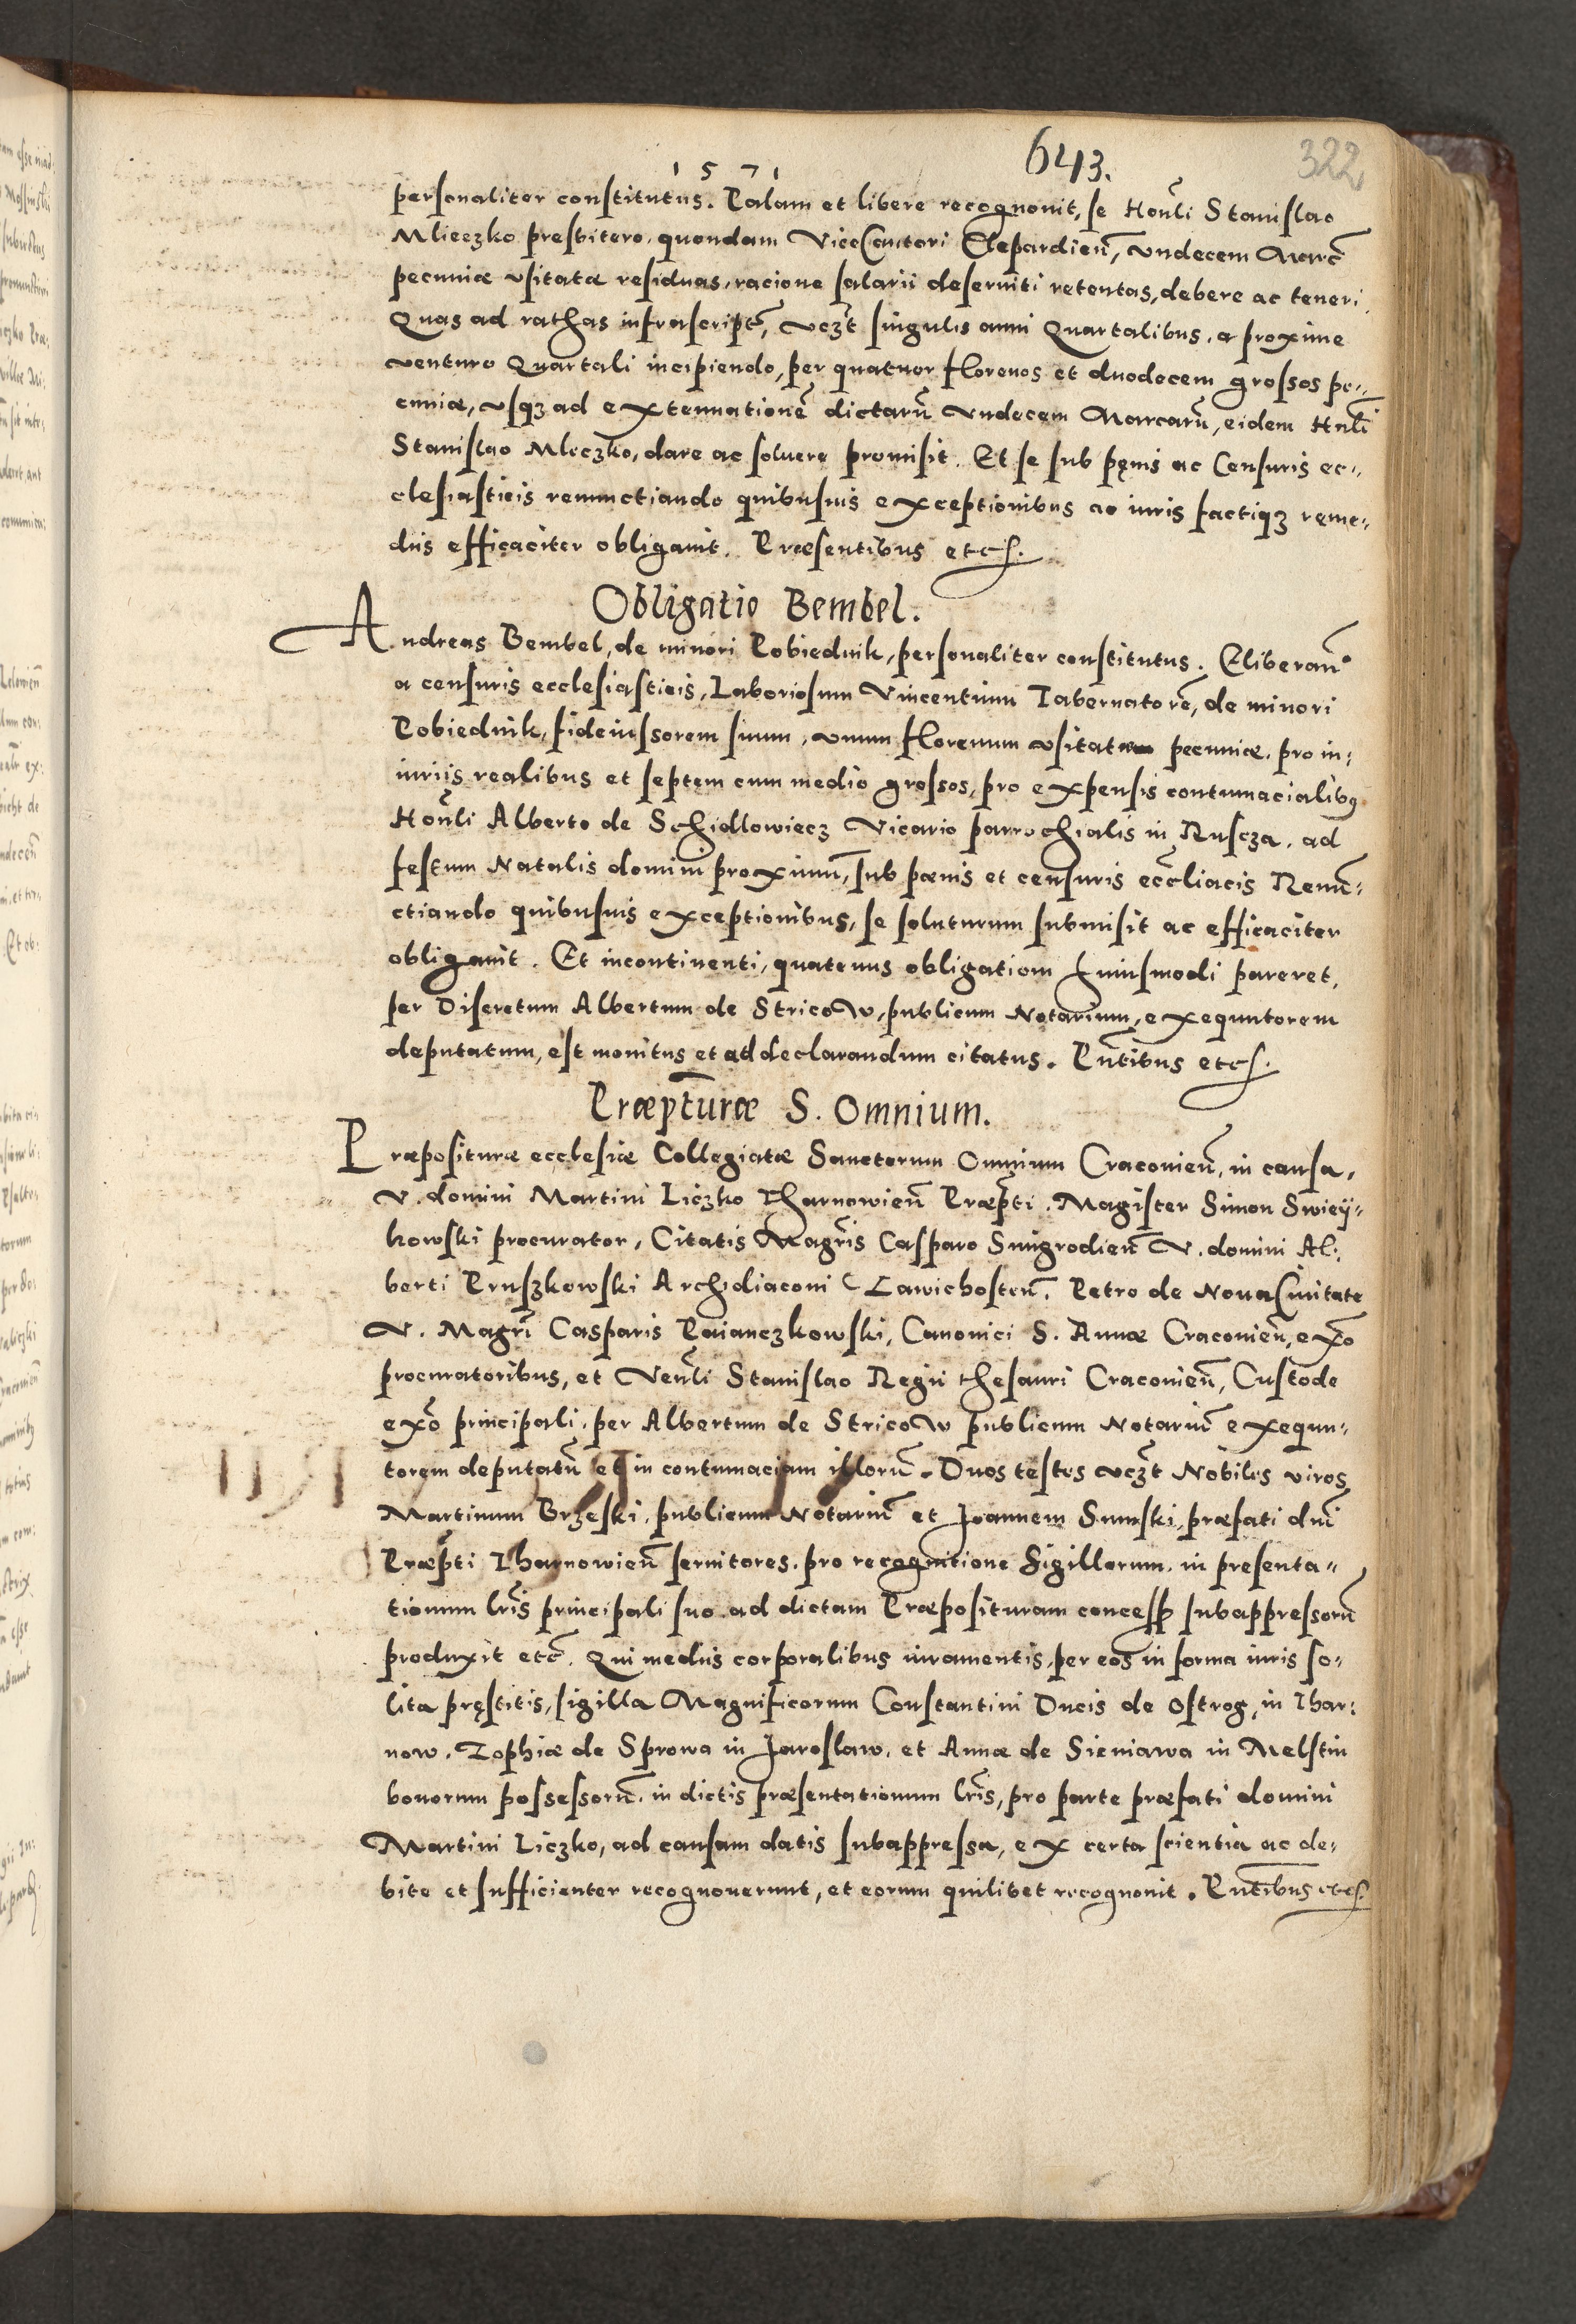 1571
643.
322
personaliter constitutus. Palam et libere recognouit, se Honli Stanislao
Mlieczko presbitero, quondam ViceCantori Clepardień, vndecem Marc̃
pecuniæ vsitatæ residuas, racione salarii deseruiti retentas, debere ac teneri
Quas ad rathas infrascript̃, vczt singulis anni Quartalibus, a proxime
venturo Quartali incipiendo, per quatuor florenos et duodecem grossos pe-
cuniæ, vsqȝ ad extenuationē dictarū vndecem Marcarū, eidem Hnli
Stanislao Mleczko, dare ac soluere promisit. Et se sub pęnis ac Censuris ec-
clesiasticis renunctiando quibusuis exceptionibus ac iuris factiqȝ reme-
diis efficaciter obligauit. Præsentibus etc.
Obligatio Bembel.
Andreas Bembel, de minori Pobiednik, personaliter constitutus. Eliberan̄
a censuris ecclesiasticis, Laboriosum Vincentium Tabernatorē, de minori
Pobiednik, fideiussorem suum, vnum florenum vsitatæ pecuniæ, pro in-
iuriis realibus et septem cum medio grossos, pro expensis contumacialibꝯ
Honli Alberto de Schidlowiecz Vicario parrochialis in Ruscza, ad
festum Natalis domini proximū, sub pænis et censuris eccliacis Renū-
ctiando quibusuis exceptionibus, se soluturum submisit ac efficaciter
obligauit. Et incontinenti, quatenus obligationi huiusmodi pareret,
per Discretum Albertum de Stricow, publicum Notarium, exequutorem
deputatum, est monitus et ad declarandum citatus. Pn̄tibus etc.
Præptūræ S. Omnium.
Præposituræ ecclesiæ Collegiatæ Sanctorum Omnium Cracovień, in causa,
V. domini Martini Liczko Tharnowień Præpti. Magister Simon Swiey-
kowski procurator, Citatis Magris Casparo Smigrodień V. domini Al-
berti Pruszkowski Archidiaconi Zawichosteń, Petro de NouaCiuitate
V. Magri Casparis Paianczkowski, Canonici S. Annæ Cracovień, exo
procuratoribus, et Venli Stanislao Regii thesauri Cracovień, Custode
exo principali, per Albertum de Stricow publicum Notariū exequu-
torem deputatū et in contumaciam illorū. Duos testes vczt Nobiles viros
Martinum Brzeski, publicum Notariū et Joannem Sumski, præfati dni
Præpti Tharnowień seruitores, pro recognitione Sigillorum, in presenta-
tionum lris principali suo ad dictam Præposituram concess subappressorū
produxit etc̃. Qui mediis corporalibus iuramentis, per eos in forma iuris so-
lita pręstitis, sigilla Magnificorum Constantini Ducis de Ostrog, in Thar-
now, Zophiæ de Sprowa in Jaroslaw, et Annæ de Sieniawa in Melstin
bonorum possessorū, in dictis præsentationum lris, pro parte præfati domini
Martini Liczko, ad causam datis subappressa, ex certa scientia ac de-
bite et sufficienter recognouerunt, et eorum quilibet recognouit. Pn̄tibus etc.